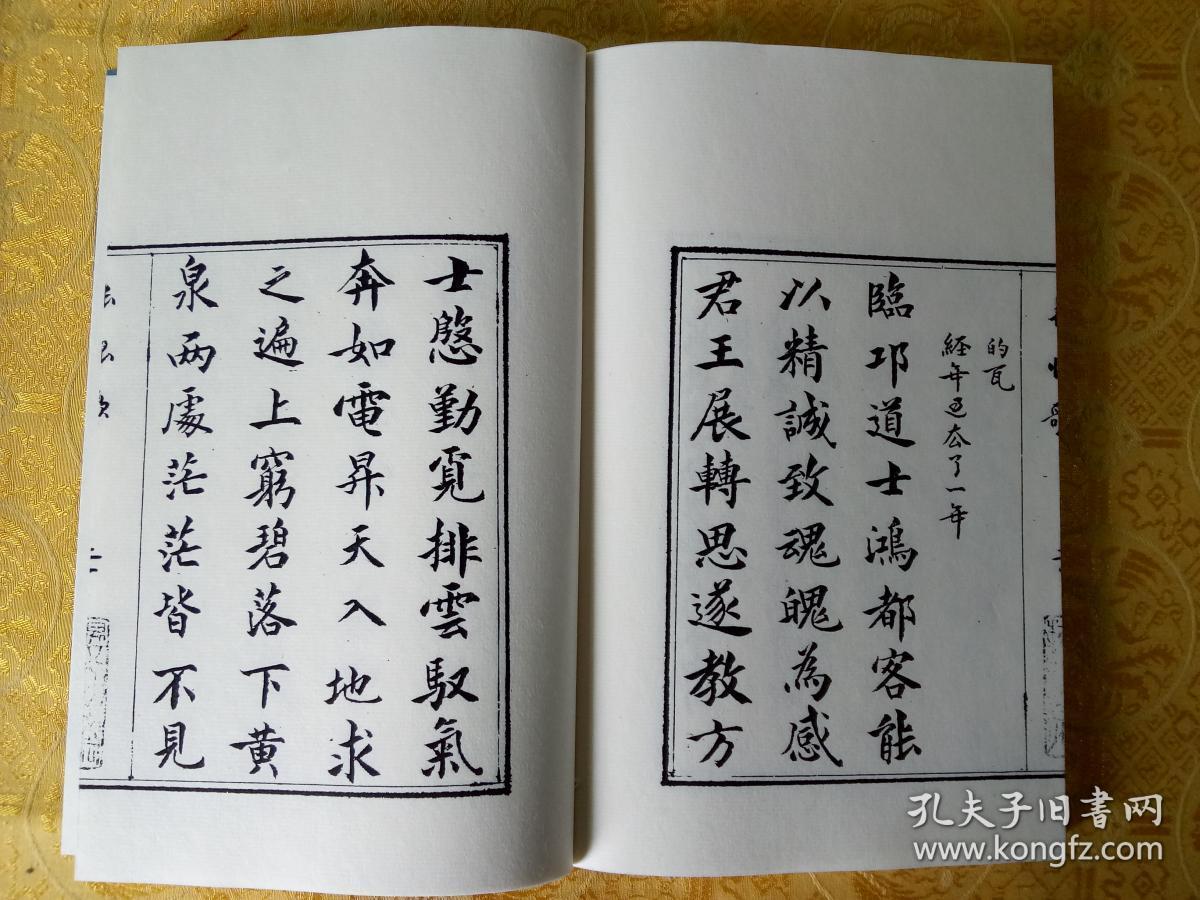 的瓦
經年過去了一年
臨邛道士鴻都客能
以精誠致魂魄為感
君王展轉思遂教方
士慇勤覓排雲馭氣
奔如電昇天入地求
之遍上窮碧落下黃
泉兩處茫茫皆不見
長恨歌
孔夫子旧书网
www.kongfz.com